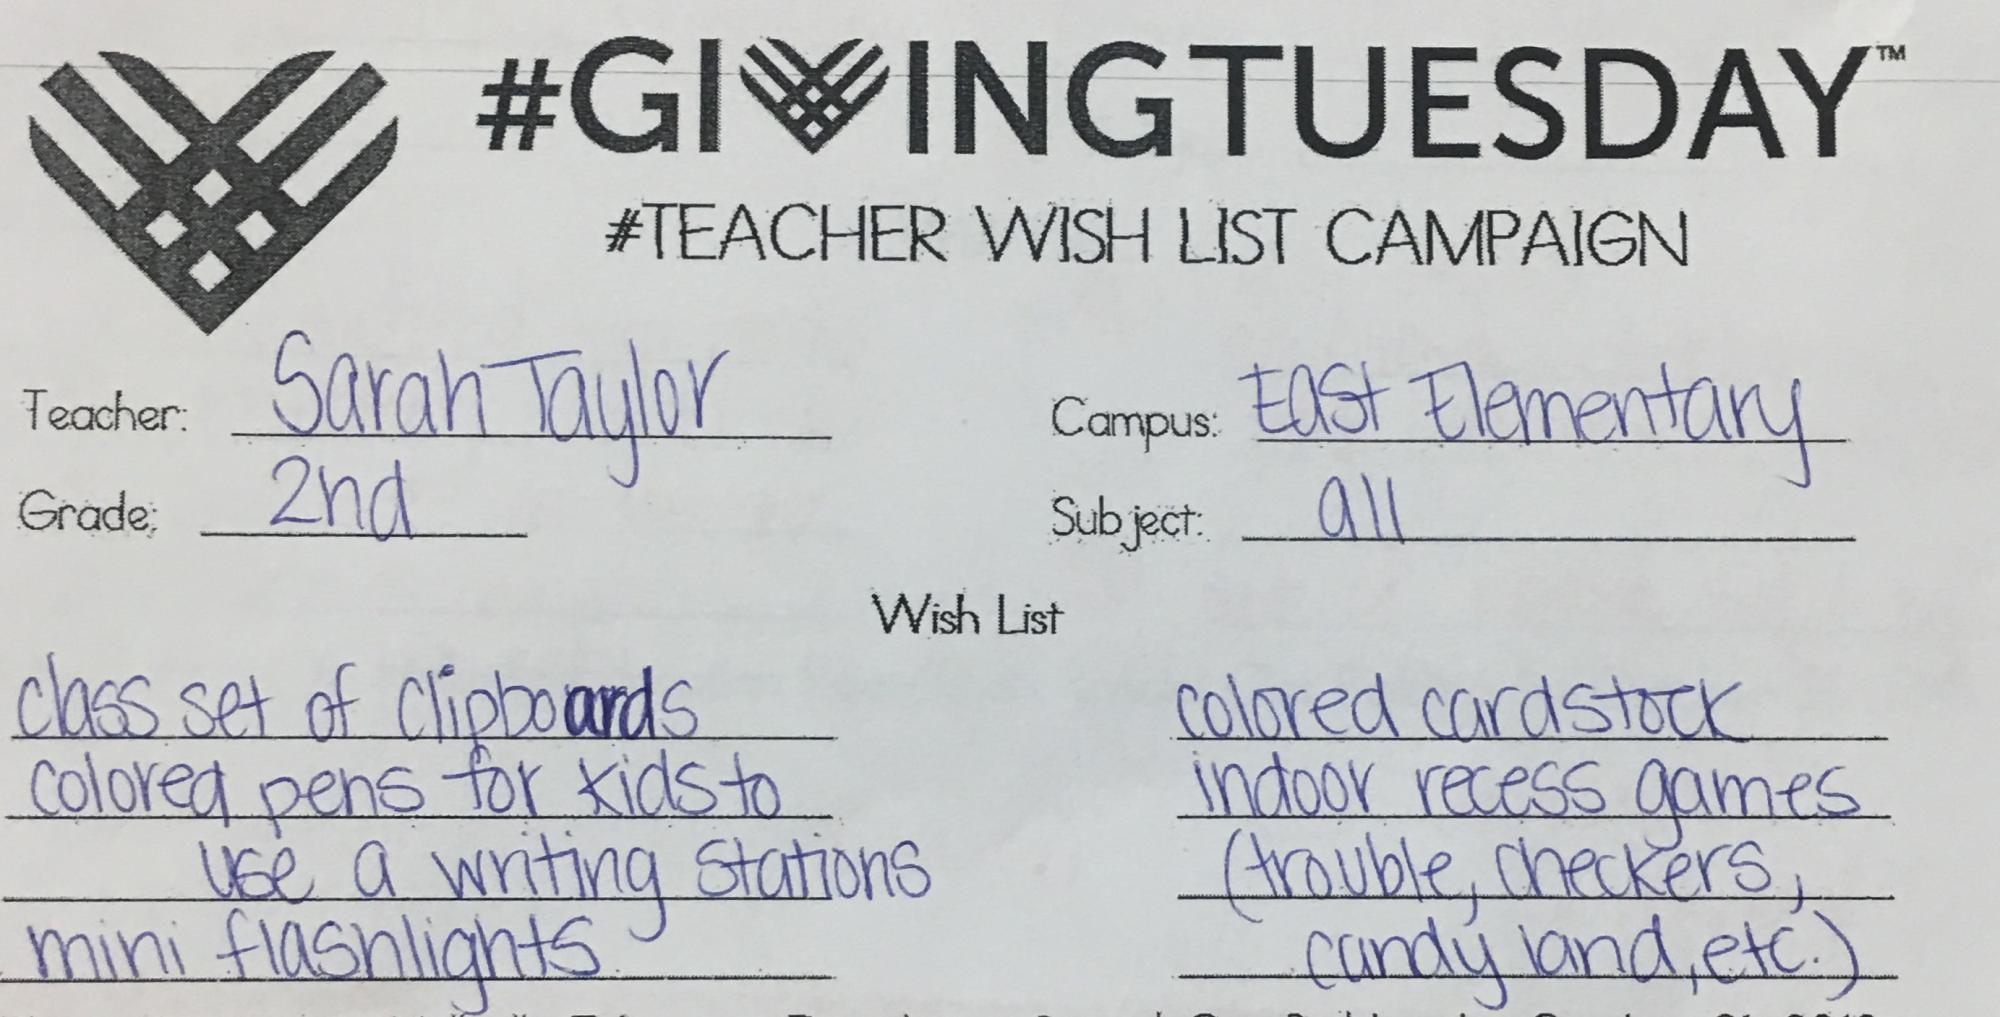 #GIVINGTUESDAY™
#TEACHER WISH LIST CAMPAIGN
Teacher: Sarah Taylor
Campus: East Elementary
Grade: 2nd
Subject: all
Wish List
class set of clipboards
colored pens for kids to
use a writing stations
mini flashlights
colored cardstock
indoor recess games
(trouble, checkers,
candy land, etc.)